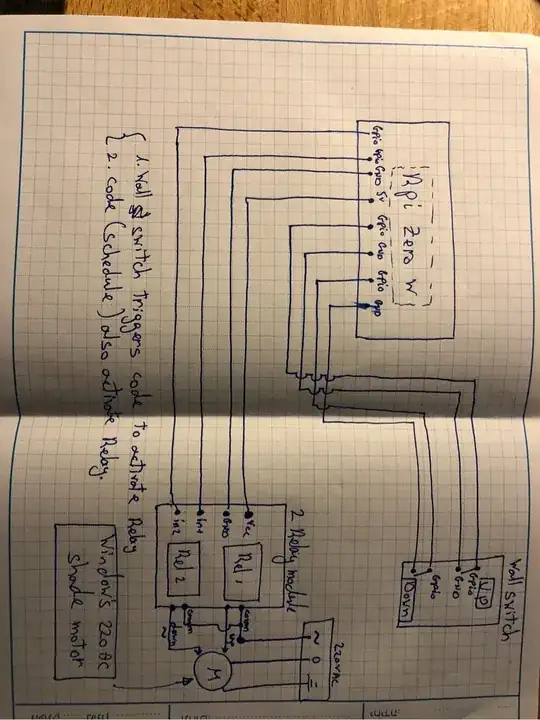 Rpi Zero W
Gpio
Gpio
GND
5V
Gpio
GND
Gpio
GND
Wall switch
UP
Gpio
GND
Gpio
Down
2 Relay module
Vcc
GND
in1
in2
Rel 1
Rel 2
comm
up
comm
down
~
M
220VAC
~
0
Window's 220ac
shade motor
1. Wall switch triggers code to activate Relay
2. code (schedule) also activate Relay.